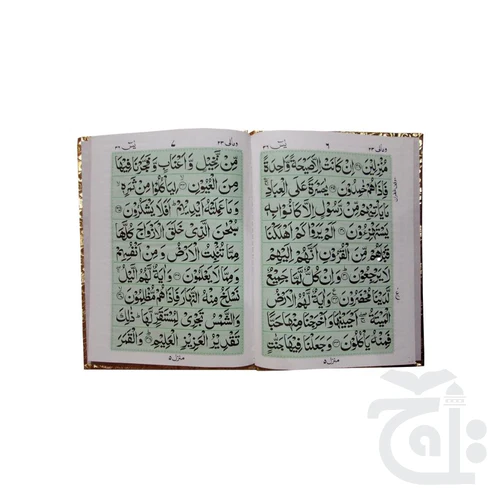 ومالی ٢٣ ٦ یٰسٓ ٣٦
مُنْزِلِيْنَ ﴿٢٨﴾ اِنْ كَانَتْ اِلَّا صَيْحَةً وَّاحِدَةً
فَاِذَا هُمْ خٰمِدُوْنَ ﴿٢٩﴾ يٰحَسْرَةً عَلَى الْعِبَادِ
مَا يَاْتِيْهِمْ مِّنْ رَّسُوْلٍ اِلَّا كَانُوْا بِهٖ
يَسْتَهْزِءُوْنَ ﴿٣٠﴾ اَلَمْ يَرَوْا كَمْ اَهْلَكْنَا
قَبْلَهُمْ مِّنَ الْقُرُوْنِ اَنَّهُمْ اِلَيْهِمْ
لَا يَرْجِعُوْنَ ﴿٣١﴾ وَاِنْ كُلٌّ لَّمَّا جَمِيْعٌ
لَّدَيْنَا مُحْضَرُوْنَ ﴿٣٢﴾ وَاٰيَةٌ لَّهُمُ الْاَرْضُ
الْمَيْتَةُ اَحْيَيْنٰهَا وَاَخْرَجْنَا مِنْهَا حَبًّا
فَمِنْهُ يَاْكُلُوْنَ ﴿٣٣﴾ وَجَعَلْنَا فِيْهَا جَنّٰتٍ
منزل ٥
ومالی ٢٣ ٧ یٰسٓ ٣٦
مِّنْ نَّخِيْلٍ وَّاَعْنَابٍ وَّفَجَّرْنَا فِيْهَا
مِنَ الْعُيُوْنِ ﴿٣٤﴾ لِيَاْكُلُوْا مِنْ ثَمَرِهٖ
وَمَا عَمِلَتْهُ اَيْدِيْهِمْ اَفَلَا يَشْكُرُوْنَ ﴿٣٥﴾
سُبْحٰنَ الَّذِيْ خَلَقَ الْاَزْوَاجَ كُلَّهَا
مِمَّا تُنْۢبِتُ الْاَرْضُ وَمِنْ اَنْفُسِهِمْ
وَمِمَّا لَا يَعْلَمُوْنَ ﴿٣٦﴾ وَاٰيَةٌ لَّهُمُ الَّيْلُ
نَسْلَخُ مِنْهُ النَّهَارَ فَاِذَا هُمْ مُّظْلِمُوْنَ ﴿٣٧﴾
وَالشَّمْسُ تَجْرِيْ لِمُسْتَقَرٍّ لَّهَا ذٰلِكَ
تَقْدِيْرُ الْعَزِيْزِ الْعَلِيْمِ ﴿٣٨﴾ وَالْقَمَرَ
منزل ٥